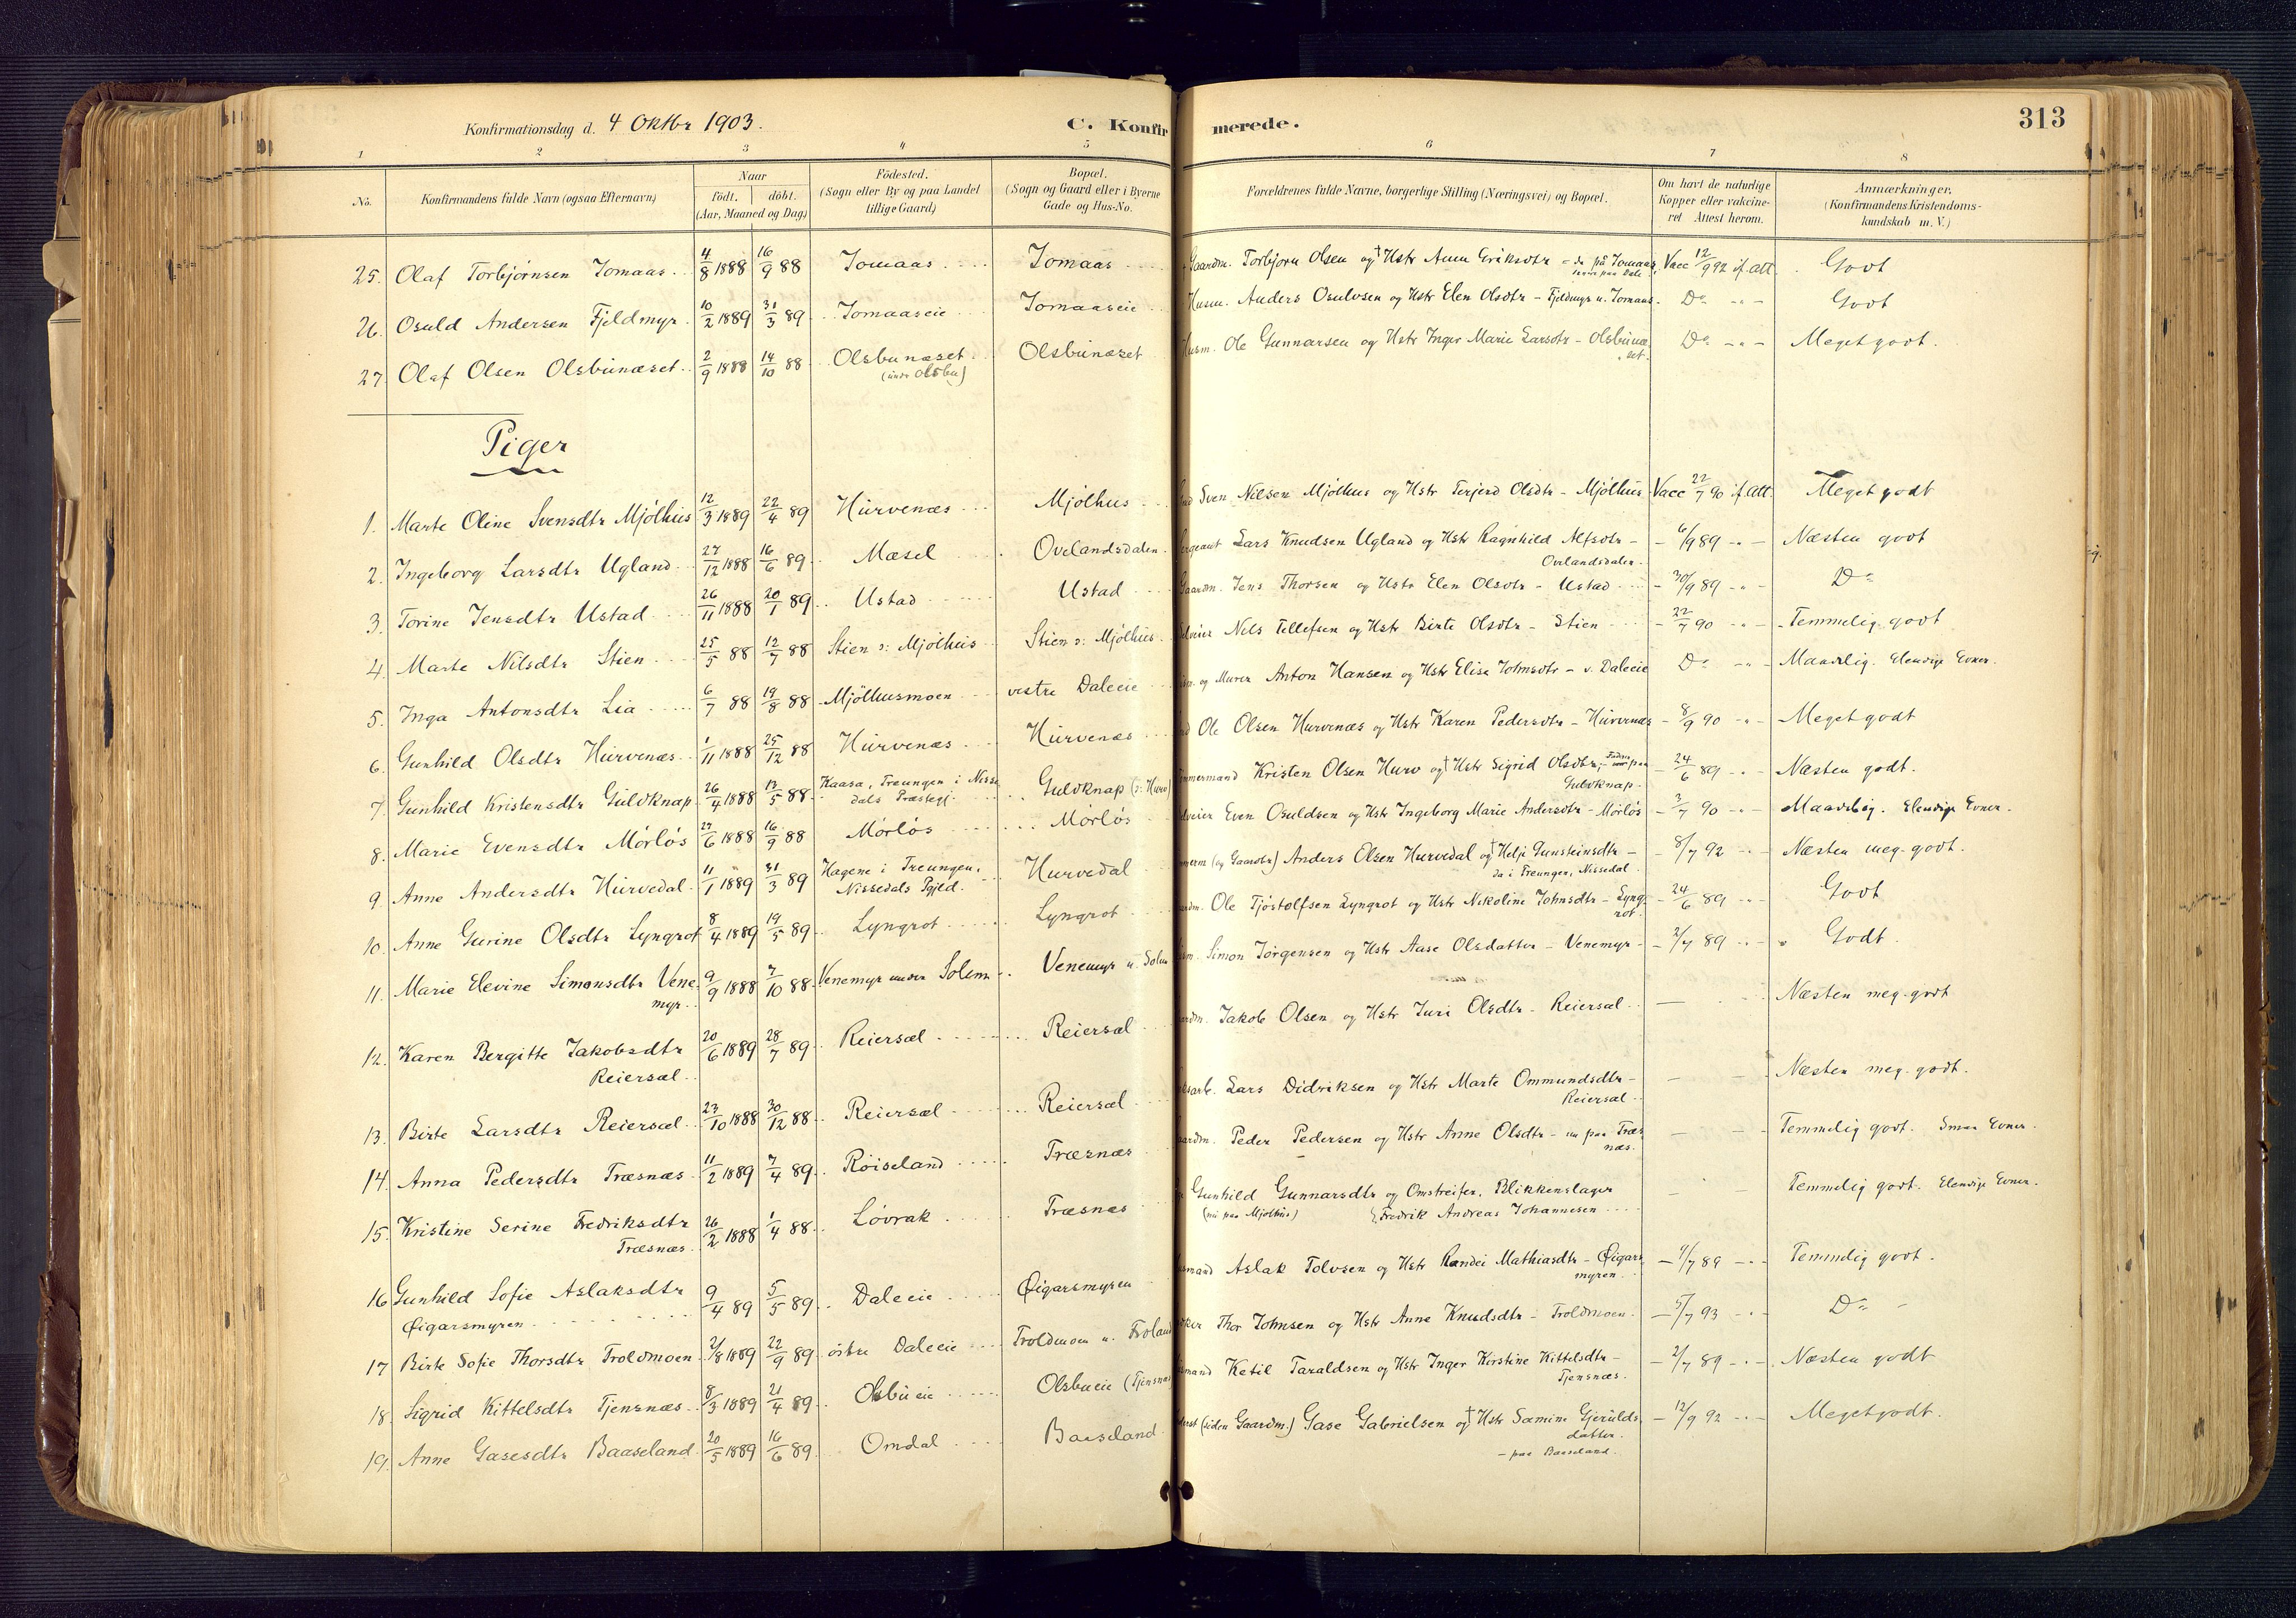 Konfirmationsdag d. 4 Oktbr 1903.
C. Konfirmerede.
313
1 2 3 4 5 6 7 8
No.
Konfirmandens fulde Navn (ogsaa Efternavn)
Naar
født. døbt.
(Aar, Maaned og Dag)
Födested.
(Sogn eller By og paa Landet
tillige Gaard)
Bopæl.
(Sogn og Gaard eller i Byerne
Gade og Hus-No.
Forældrenes fulde Navne, borgerlige Stilling (Næringsvei) og Bopæl.
Om havt de naturlige
Kopper eller vakcine-
ret Attest herom.
Anmærkninger,
(Konfirmandens Kristendoms-
kundskab m. V.)
25. Olaf Torbjørnsen Tomaas. 4/8 1888 16/9 88 Tomaas Tomaas Gaardm. Torbjørn Olsen og † Hstr Anne Eriksdtr – da på Tomaas, Vacc 12/9 92 if. att. Godt
26. Osuld Andersen Fjeldmyr. 10/2 1889 31/3 89 Tomaaseie Tomaaseie Husm. Anders Osulvsen og Hstr Elen Olsdtr – Fjeldmyr u. Tomaas. Do Godt
27. Olaf Olsen Olsbunæset. 2/9 1888 14/10 88 Olsbunæset. Olsbunæset Husm. Ole Gunnarsen og Hstr Inger Marie Larsdtr – Olsbunæ Do Meget godt.
(under Olsbu) set.
Piger
1. Marte Oline Svensdtr Mjölhus 12/3 1889 22/4 89 Hurvenæs Mjölhus Sven Nilsen Mjölhus og Hstr Terjerd Olsdtr – Mjölhus Vacc 22/7 90 if. att. Meget godt
2. Ingeborg Larsdtr Ugland 27/12 1888 16/6 89 Mæsel Ovelandsdalen. Lars Knudsen Ugland og Hstr Ragnhild Alfsdtr – 6/9 89 Næsten godt
Ovelandsdalen.
3. Torine Jensdtr Ustad 26/11 1888 20/1 89 Ustad Ustad Gaardm. Jens Thorsen og Hstr Elen Olsdtr – Ustad 30/9 89 Do
4. Marte Nilsdtr Stien 25/5 88 12/7 88 Stien o: Mjölhus Stien o: Mjölhus. Nils Tellefsen og Hstr Birte Olsdtr – Stien 22/7 90 Temmelig godt
5. Inga Antonsdtr Lia 6/7 88 19/8 88 Mjölhusmoen vestre Daleeie og Murer Anton Hansen og Hstr Elise Johnsdtr – v. Daleeie Do Maadelig. Elendige Evner.
6. Gunhild Olsdtr Hurvenæs. 1/11 1888 25/12 88 Hurvenæs Hurvenæs Ole Olsen Hurvenæs og Hstr Karen Pedersdtr – Hurvenæs 8/9 90 Meget godt
7. Gunhild Kristensdtr Guldknap 26/4 1888 13/5 88 Kaasa, Treungen i Nisse Guldknap (o: Hurv) Kristen Olsen Hurv og † Hstr Sigrid Olsdtr, paa 24/6 89 Næsten godt.
dals Præstegj. Guldknap.
8. Marie Evensdtr Mörlös 27/6 1888 16/9 88 Mörlös Mörlös Even Osuldsen og Hstr Ingeborg Marie Andersdtr – Mörlös 3/7 90 Maadelig. Elendige Evner.
9. Anne Andersdtr Hurvedal. 11/1 1889 31/3 89 Hagene i Treungen, Hurvedal (og Gaardbr) Anders Olsen Hurvedal og † Helje Gunsteinsdtr – 8/7 92 Næsten meg. godt.
Nissedals Pgjeld. da i Treungen, Nissedal
10. Anne Gurine Olsdtr Lyngrot 8/4 1889 19/5 89 Lyngrot Lyngrot Ole Tjöstolfsen Lyngrot og Hstr Nikoline Johnsdtr – Lyng- 24/6 89 Godt
rot.
11. Marie Elevine Simonsdtr Vene 9/9 1888 7/10 88 Venemyr under Solem Venemyr u. Solem Simon Jörgensen og Hstr Aase Olsdatter – Venemyr – 2/7 89 Godt
myr.
12. Karen Bergitte Jakobsdtr 20/6 1889 28/7 89 Reiersæl Reiersæl Jakob Olsen og Hstr Juri Olsdtr – Reiersæl Næsten meg. godt
Reiersæl.
13. Birte Larsdtr Reiersæl 23/10 1888 30/12 88 Reiersæl Reiersæl Lars Didriksen og Hstr Marte Ommundsdtr – Næsten meg. godt.
Reiersæl
14. Anna Pedersdtr Træsnæs 11/2 1889 7/4 89 Röiseland Træsnæs Peder Pedersen og Hstr Anne Olsdtr – nu paa Træs Temmelig godt. Smaa Evner.
næs.
15. Kristine Serine Fredriksdtr 26/2 1888 1/4 88 Lövrak Træsnæs Gunhild Gunnarsdtr og Omstreifer, Blikkenslager Temmelig godt. Elendige Evner.
Træsnæs. (nu paa Mjölhus) Fredrik Andreas Johannesen
16 Gunhild Sofie Aslaksdtr 9/4 89 5/5 89 Daleeie Øigarsmyren Aslak Tolvsen og Hstr Randei Mathiasdtr – Øigars 9/7 89 Temmelig godt.
Øigarsmyren myren
17 Birte Sofie Thorsdtr Troldmoen 2/8 1889 22/9 89 östre Daleeie Troldmoen u. Froland Thor Johnsen og Hstr Anne Knudsdtr – Troldmoen 5/7 93 Do
18. Sigrid Kittelsdtr Tjensnæs 8/3 1889 21/4 89 Olsbueie Olsbueie (Tjensnæs Ketil Taraldsen og Hstr Inger Kirstine Kittelsdtr – 2/7 89 Næsten godt
Tjensnæs.
19. Anne Gasesdtr Baaseland. 20/5 1889 16/6 89 Omdal Baaseland (siden Gaardm.) Gase Gabrielsen og † Hstr Samine Gjerulds- 12/9 92 Meget godt.
datter.
– paa Baaseland.